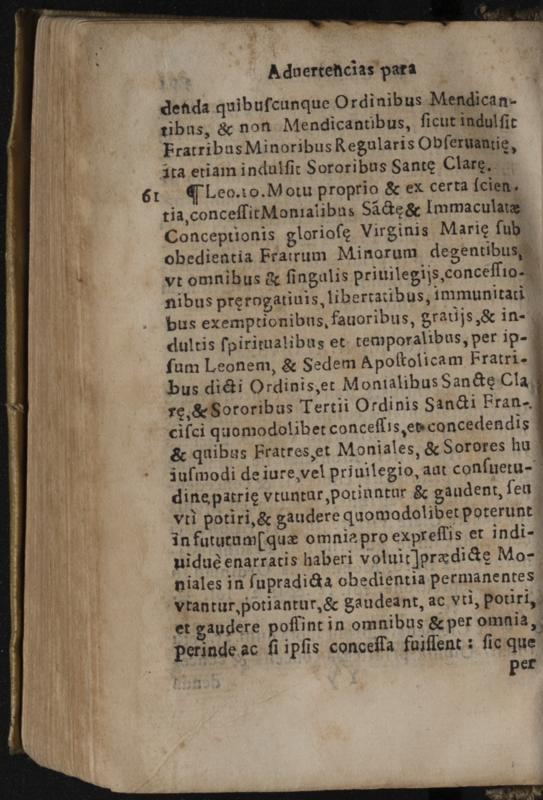 Aduertencias para
denda quibuscunque Ordinibus Mendican-
tibus, & non Mendicantibus, sicut indulsit
Fratribus Minoribus Regularis Obseruantię,
ita etiam indulsit Sororibus Santę Clarę.
61 ¶ Leo.10. Motu proprio & ex certa scien-
tia, concessit Monialibus Sãctę & Immaculatæ
Conceptionis gloriosę Virginis Marię sub
obedientia Fratrum Minorum degentibus,
vt omnibus & singulis priuilegijs, concessio-
nibus pręrogatiuis, libertatibus, immunitati
bus exemptionibus, fauoribus, gratijs, & in-
dultis spiritualibus et temporalibus, per ip-
sum Leonem, & Sedem Apostolicam Fratri-
bus dicti Ordinis, et Monialibus Sanctę Cla
rę, & Sororibus Tertii Ordinis Sancti Fran-
cisci quomodolibet concessis, et concedendis
& quibus Fratres, et Moniales, & Sorores hu
iusmodi de iure, vel priuilegio, aut consuetu-
dine, patrię vtuntur, potiuntur & gaudent, seu
vti potiri, & gaudere quomodolibet poterunt
in futurum [quæ omnia pro expressis et indi-
uiduè enarratis haberi voluit] prædictę Mo-
niales in supradicta obedientia permanentes
vtantur, potiantur, & gaudeant, ac vti, potiri,
et gaudere possint in omnibus & per omnia,
perinde ac si ipsis concessa fuissent: sic que
per